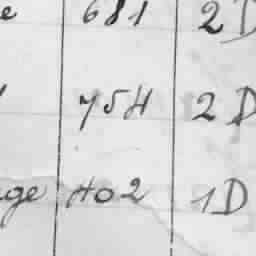 e 681 2D
754 2D
ge 402 1D